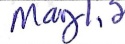 May 1, 2